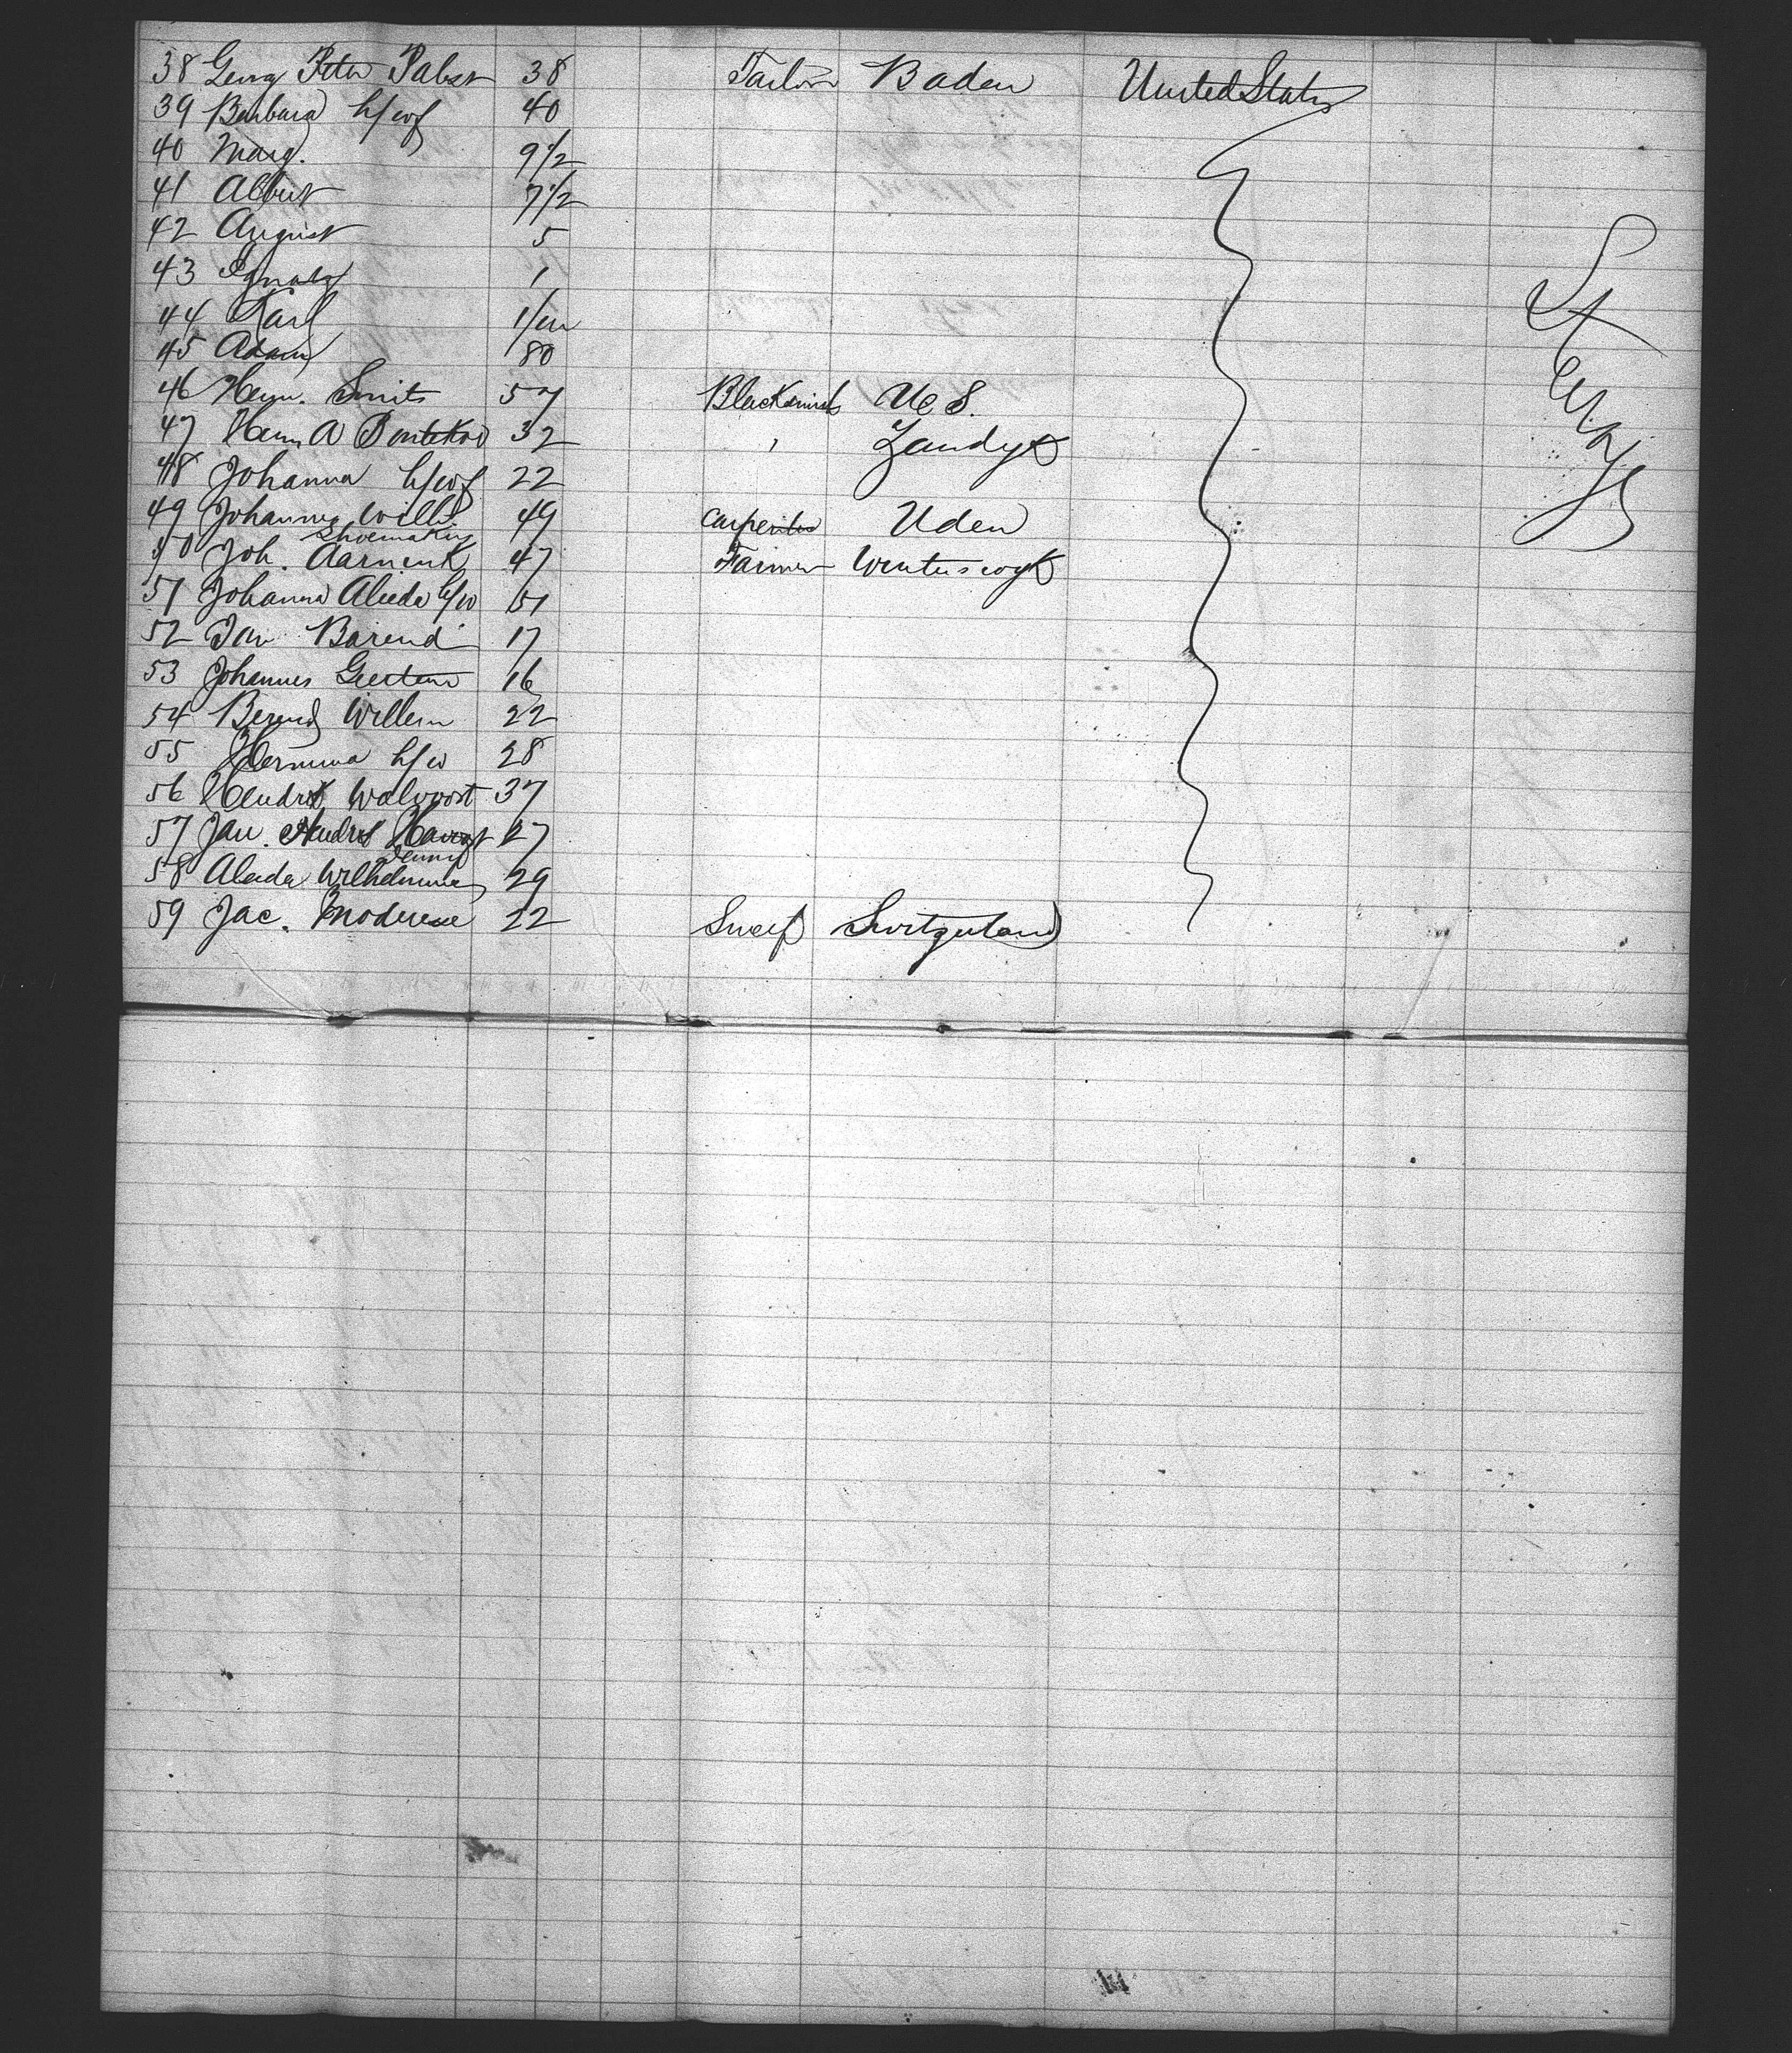 38 Georg Peter Pabst 38 Tailor Baden United States
39 Barbara h/wf 40
40 Marg. 9 1/2
41 Albert 7 1/2
42 August 5
43 Ignatz 1
44 Karl 1/m
45 Adam 80
46 Herm. Smits 57 Blacksmith U S.
47 Herm A Bontekoe 32 " Zandyk
48 Johanna h/wf 22
49 Johannes Will 49 Carpenter Uden
Shoemaking
50 Joh. Aarnink 47 Farmer Winterswyk
51 Johanna Alieda h/w 51
52 Jan Barend 17
53 Johannes 16
54 Berend Willem 22
55 Hermina h/w 28
56 Hendrik Walvoort 37
57 Jan. Hendrik 27
58 Aleida Wilhelmina 29
59 Jac. 22 Switzerland
Steerage